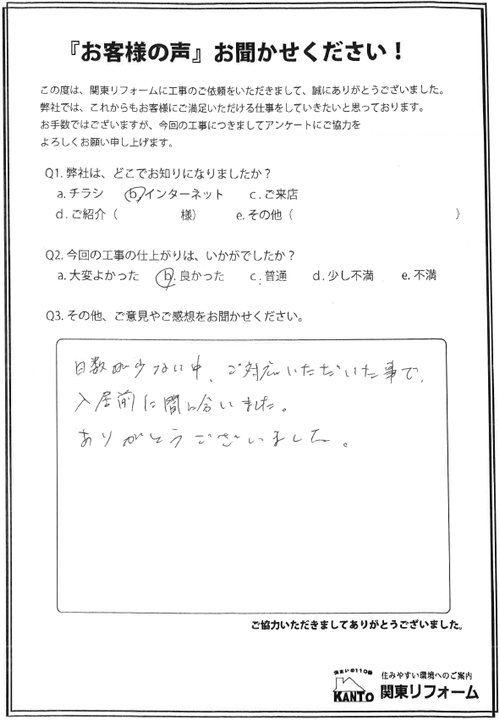 『お客様の声』お聞かせください！
この度は、関東リフォームに工事のご依頼をいただきまして、誠にありがとうございました。
弊社では、これからもお客様にご満足いただける仕事をしていきたいと思っております。
お手数ではございますが、今回の工事につきましてアンケートにご協力を
よろしくお願い申し上げます。
Q1. 弊社は、どこでお知りになりましたか？
a. チラシ b. インターネット c. ご来店
d. ご紹介（ 様） e. その他（ ）
Q2. 今回の工事の仕上がりは、いかがでしたか？
a. 大変よかった b. 良かった c. 普通 d. 少し不満 e. 不満
Q3. その他、ご意見やご感想をお聞かせください。
日数が少ない中、ご対応いただいた事で、
入居前に間に合いました。
ありがとうございました。
ご協力いただきましてありがとうございました。
住まいの110番
KANTO
住みやすい環境へのご案内
関東リフォーム